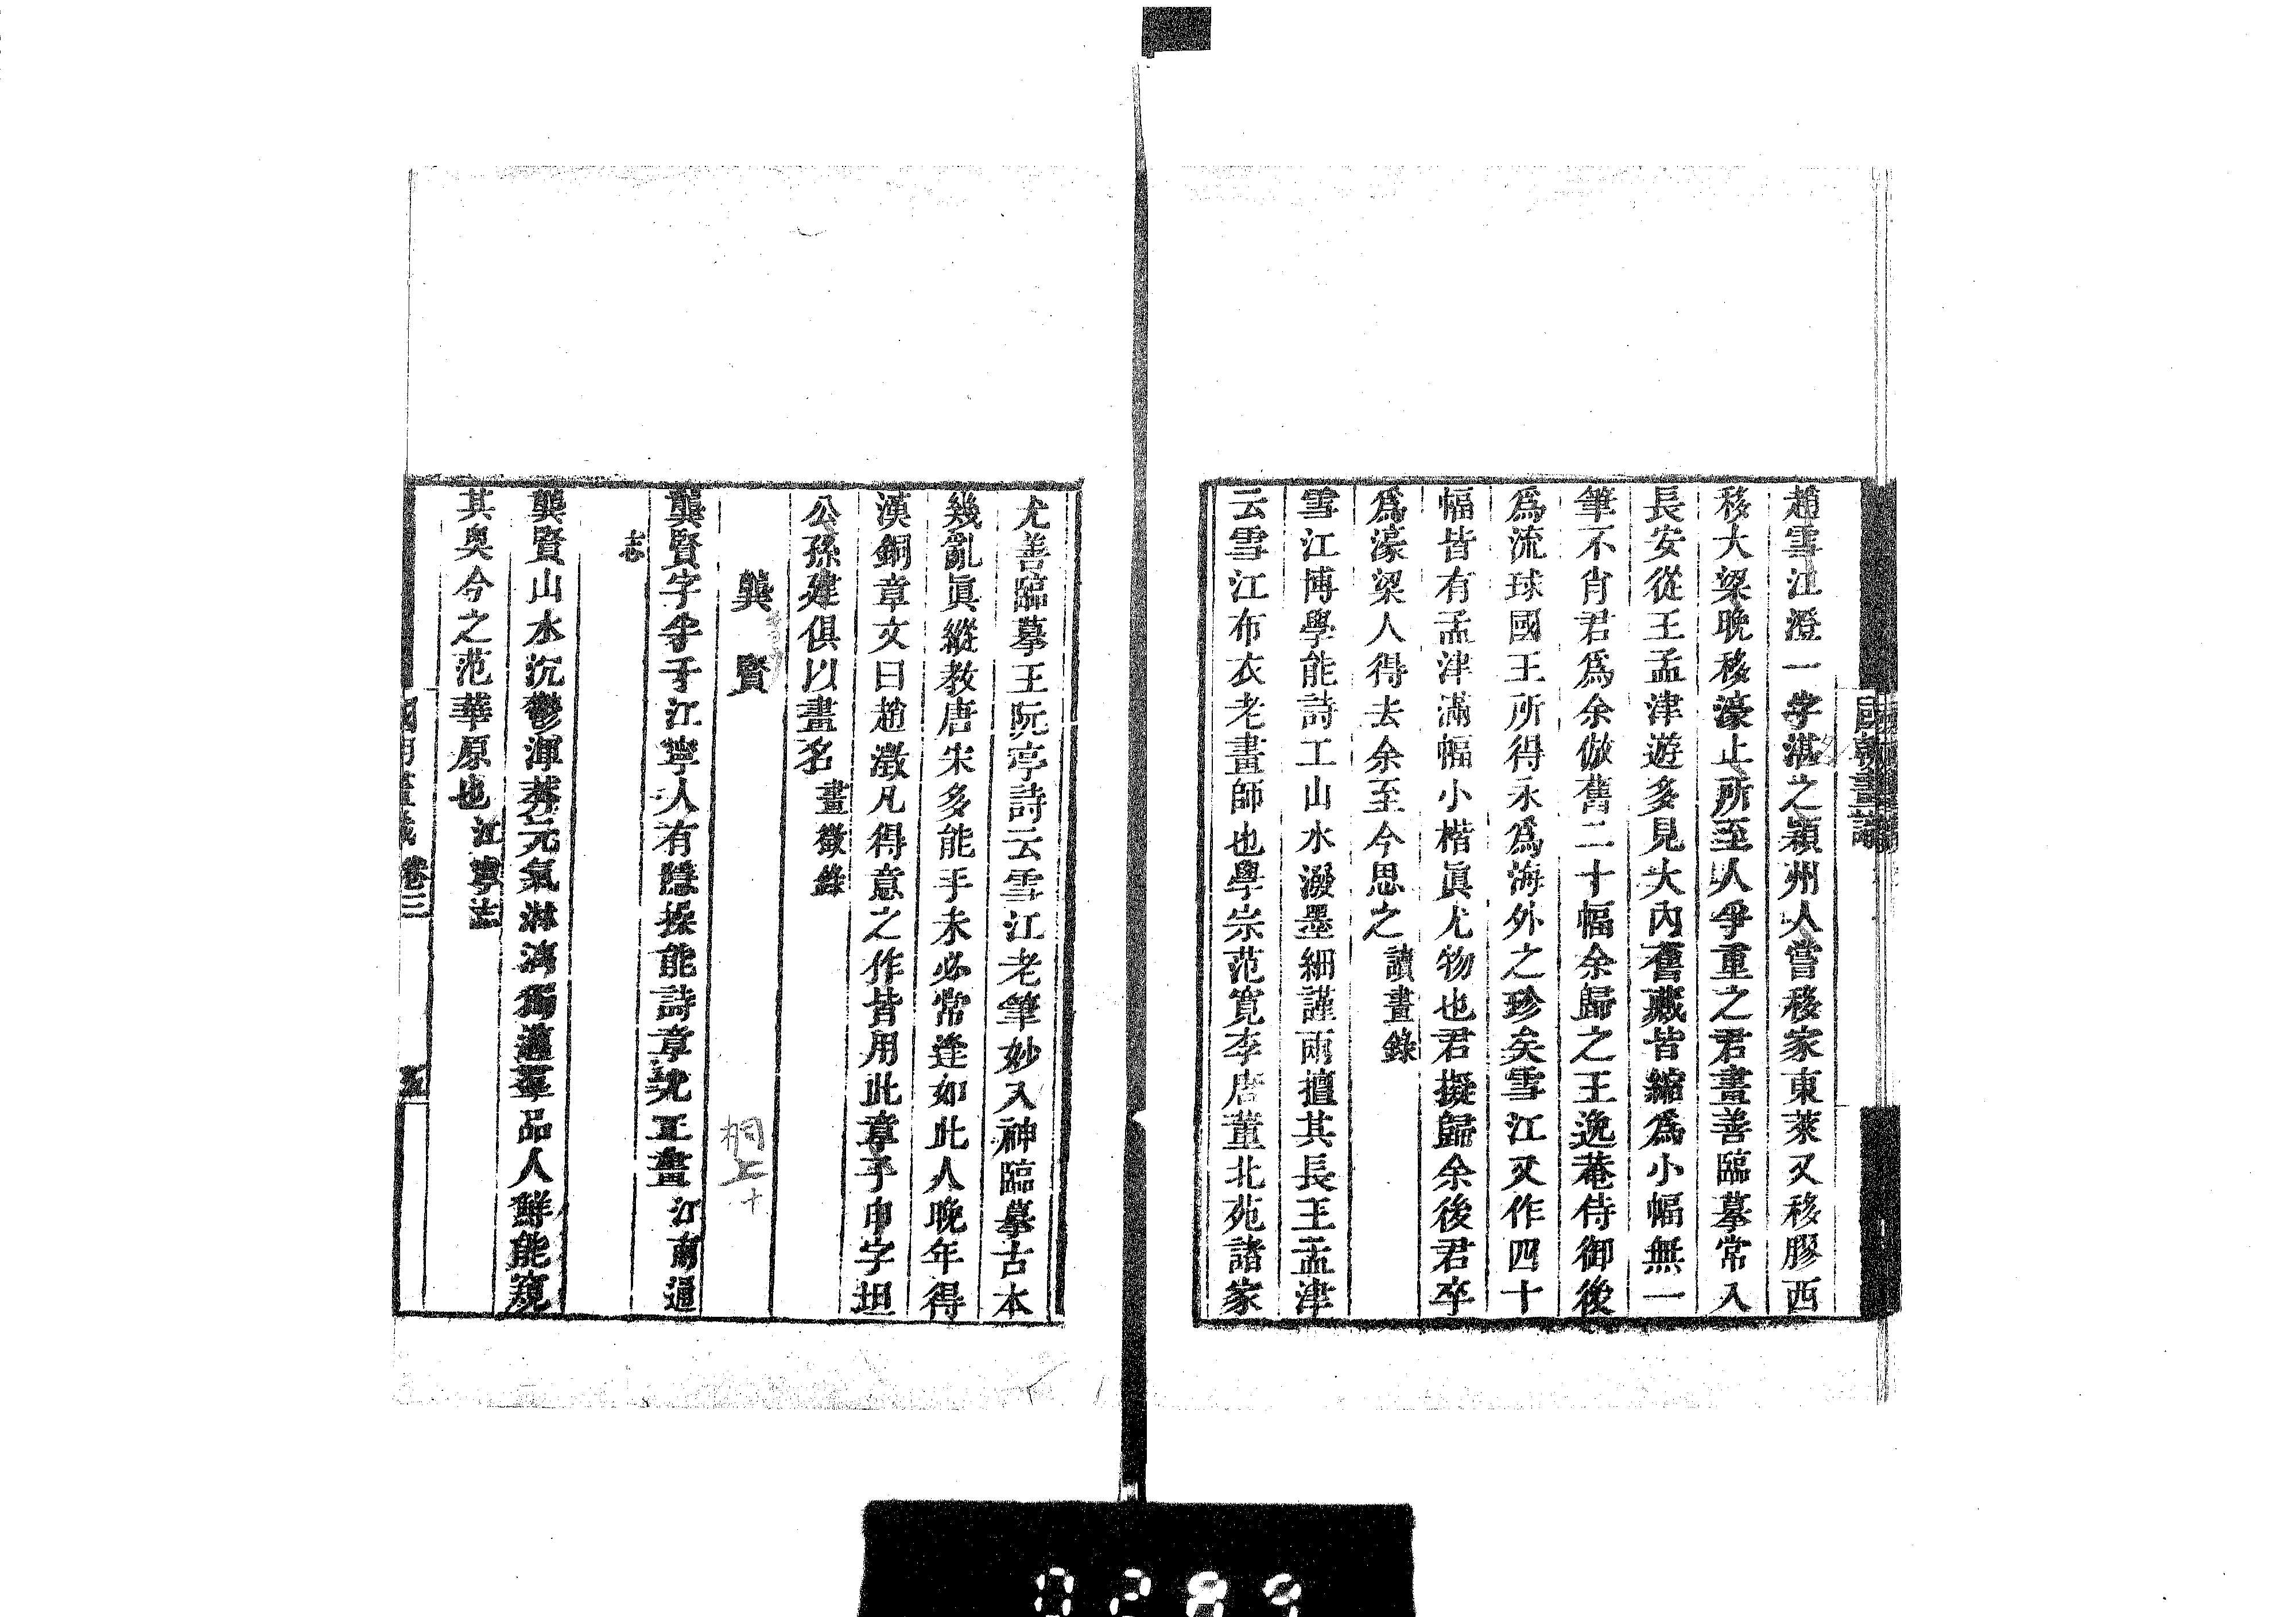 趙雪江澄一字湛之潁州人嘗移家東萊又移膠西
移大梁晚移濠止所至人爭重之君畫善臨摹常入
長安從王孟津遊多見大內舊藏皆縮爲小幅無一
筆不肖君爲余倣舊二十幅余歸之王逸菴侍御後
爲流球國王所得永爲海外之珍矣雪江又作四十
幅皆有孟津滿幅小楷眞尤物也君擬歸余後君卒
爲濠梁人得去余至今思之讀畫錄
雪江博學能詩工山水潑墨細謹兩擅其長王孟津
云雪江布衣老畫師也學宗范寬李唐董北苑諸家
尤善臨摹王阮亭詩云雪江老筆妙入神臨摹古本
幾亂眞縱教唐宋多能手未必常逢如此人晚年得
漢銅章文曰趙澂凡得意之作皆用此章子申字坦
公孫建俱以畫名畫徵錄
龔賢
龔賢字半千江寧人有隱操能詩章尤工畫江南通
志
龔賢山水沉鬱渾莽元氣淋漓獨邁羣品人鮮能窺
其奥今之范華原也江寧志
卷三
五
0299